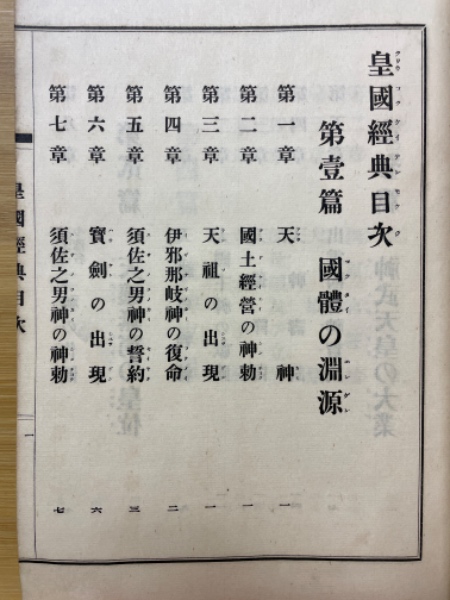 皇國經典目次
第壹篇 國體の淵源
第一章 天神 一
第二章 國土經營の神勅 一
第三章 天祖の出現 一
第四章 伊邪那岐神の復命 二
第五章 須佐之男神の誓約 三
第六章 寳劍の出現 六
第七章 須佐之男神の神勅 七
皇國經典目次
一